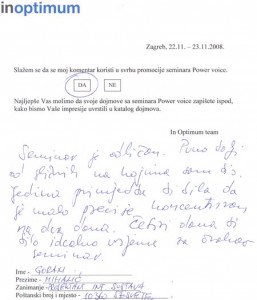 inoptimum
Zagreb, 22.11. – 23.11.2008.
Slažem se da se moj komentar koristi u svrhu promocije seminara Power voice.
DA NE
Najljepše Vas molimo da svoje dojmove sa seminara Power voice zapišete ispod,
kako bismo Vaše impresije uvrstili u katalog dojmova.
In Optimum team
Seminar je odličan. Puno bolji
od sličnih na kojima sam bio.
Jedina primjedba bi bila da
je malo previše koncentriran
na dva dana. Četiri dana bi
bilo idealno vrijeme za ovakav
seminar.
Ime - GORAN
Prezime - MIHANIĆ
Zanimanje -
Poštanski broj i mjesto - 10360 SESVETE